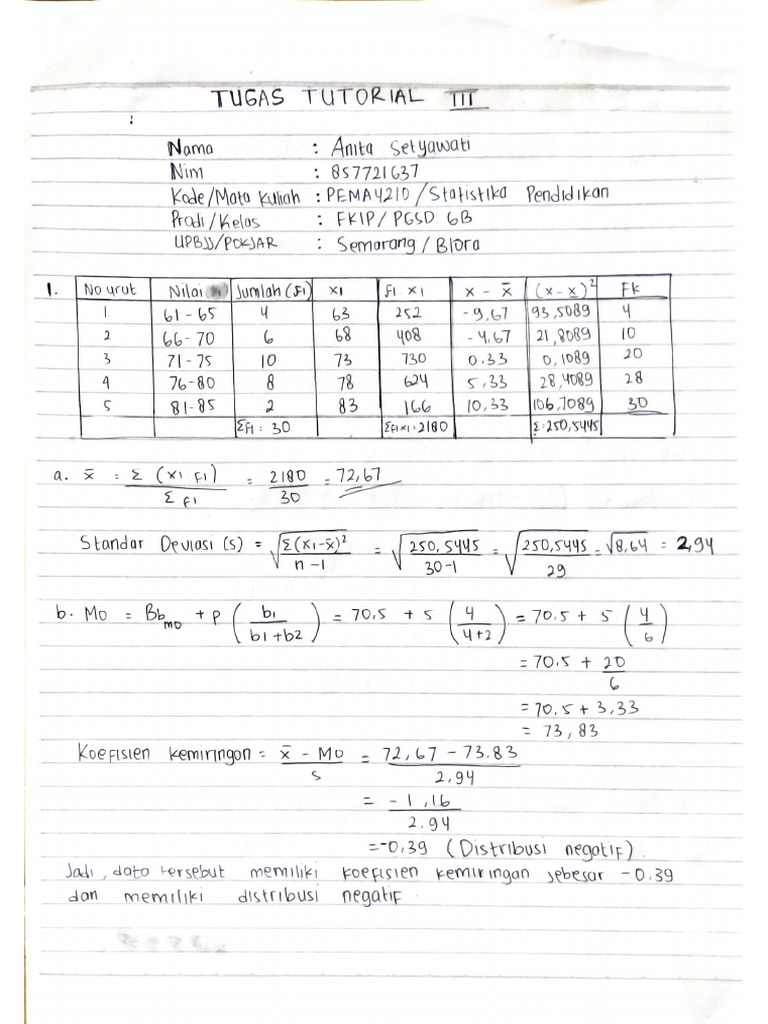 TUGAS TUTORIAL III
:
Nama : Anita Setyawati
Nim : 857721637
Kode/Mata Kuliah : PEMA4210/Statistika Pendidikan
Prodi/Kelas : FKIP/PGSD 6B
UPBJJ/POKJAR : Semarang/Blora
1. No urut Nilai Jumlah (f1) x1 f1.x1 x - x̄ (x-x)² Fk
1 61-65 4 63 252 -9,67 93,5089 4
2 66-70 6 68 408 -4,67 21,8089 10
3 71-75 10 73 730 0.33 0,1089 20
4 76-80 8 78 624 5,33 28,4089 28
5 81-85 2 83 166 10,33 106,7089 30
Σf1 = 30 Σf1x1=2180 Σ=250,5445
a. x̄ = Σ (x1 f1) / Σ f1 = 2180 / 30 = 72,67
Standar Deviasi (s) = √Σ(x1-x̄)² / n-1 = √250,5445 / 30-1 = √250,5445 / 29 = √8,64 = 2,94
b. Mo = Bb mo + p (b1 / b1+b2) = 70,5 + 5 (4 / 4+2) = 70.5 + 5 (4 / 6)
= 70.5 + 20 / 6
= 70.5 + 3,33
= 73,83
Koefisien kemiringan = x̄ - Mo / s = 72,67 - 73.83 / 2,94
= -1,16 / 2.94
= -0,39 (Distribusi negatif).
Jadi, data tersebut memiliki koefisien kemiringan sebesar -0.39
dan memiliki distribusi negatif.